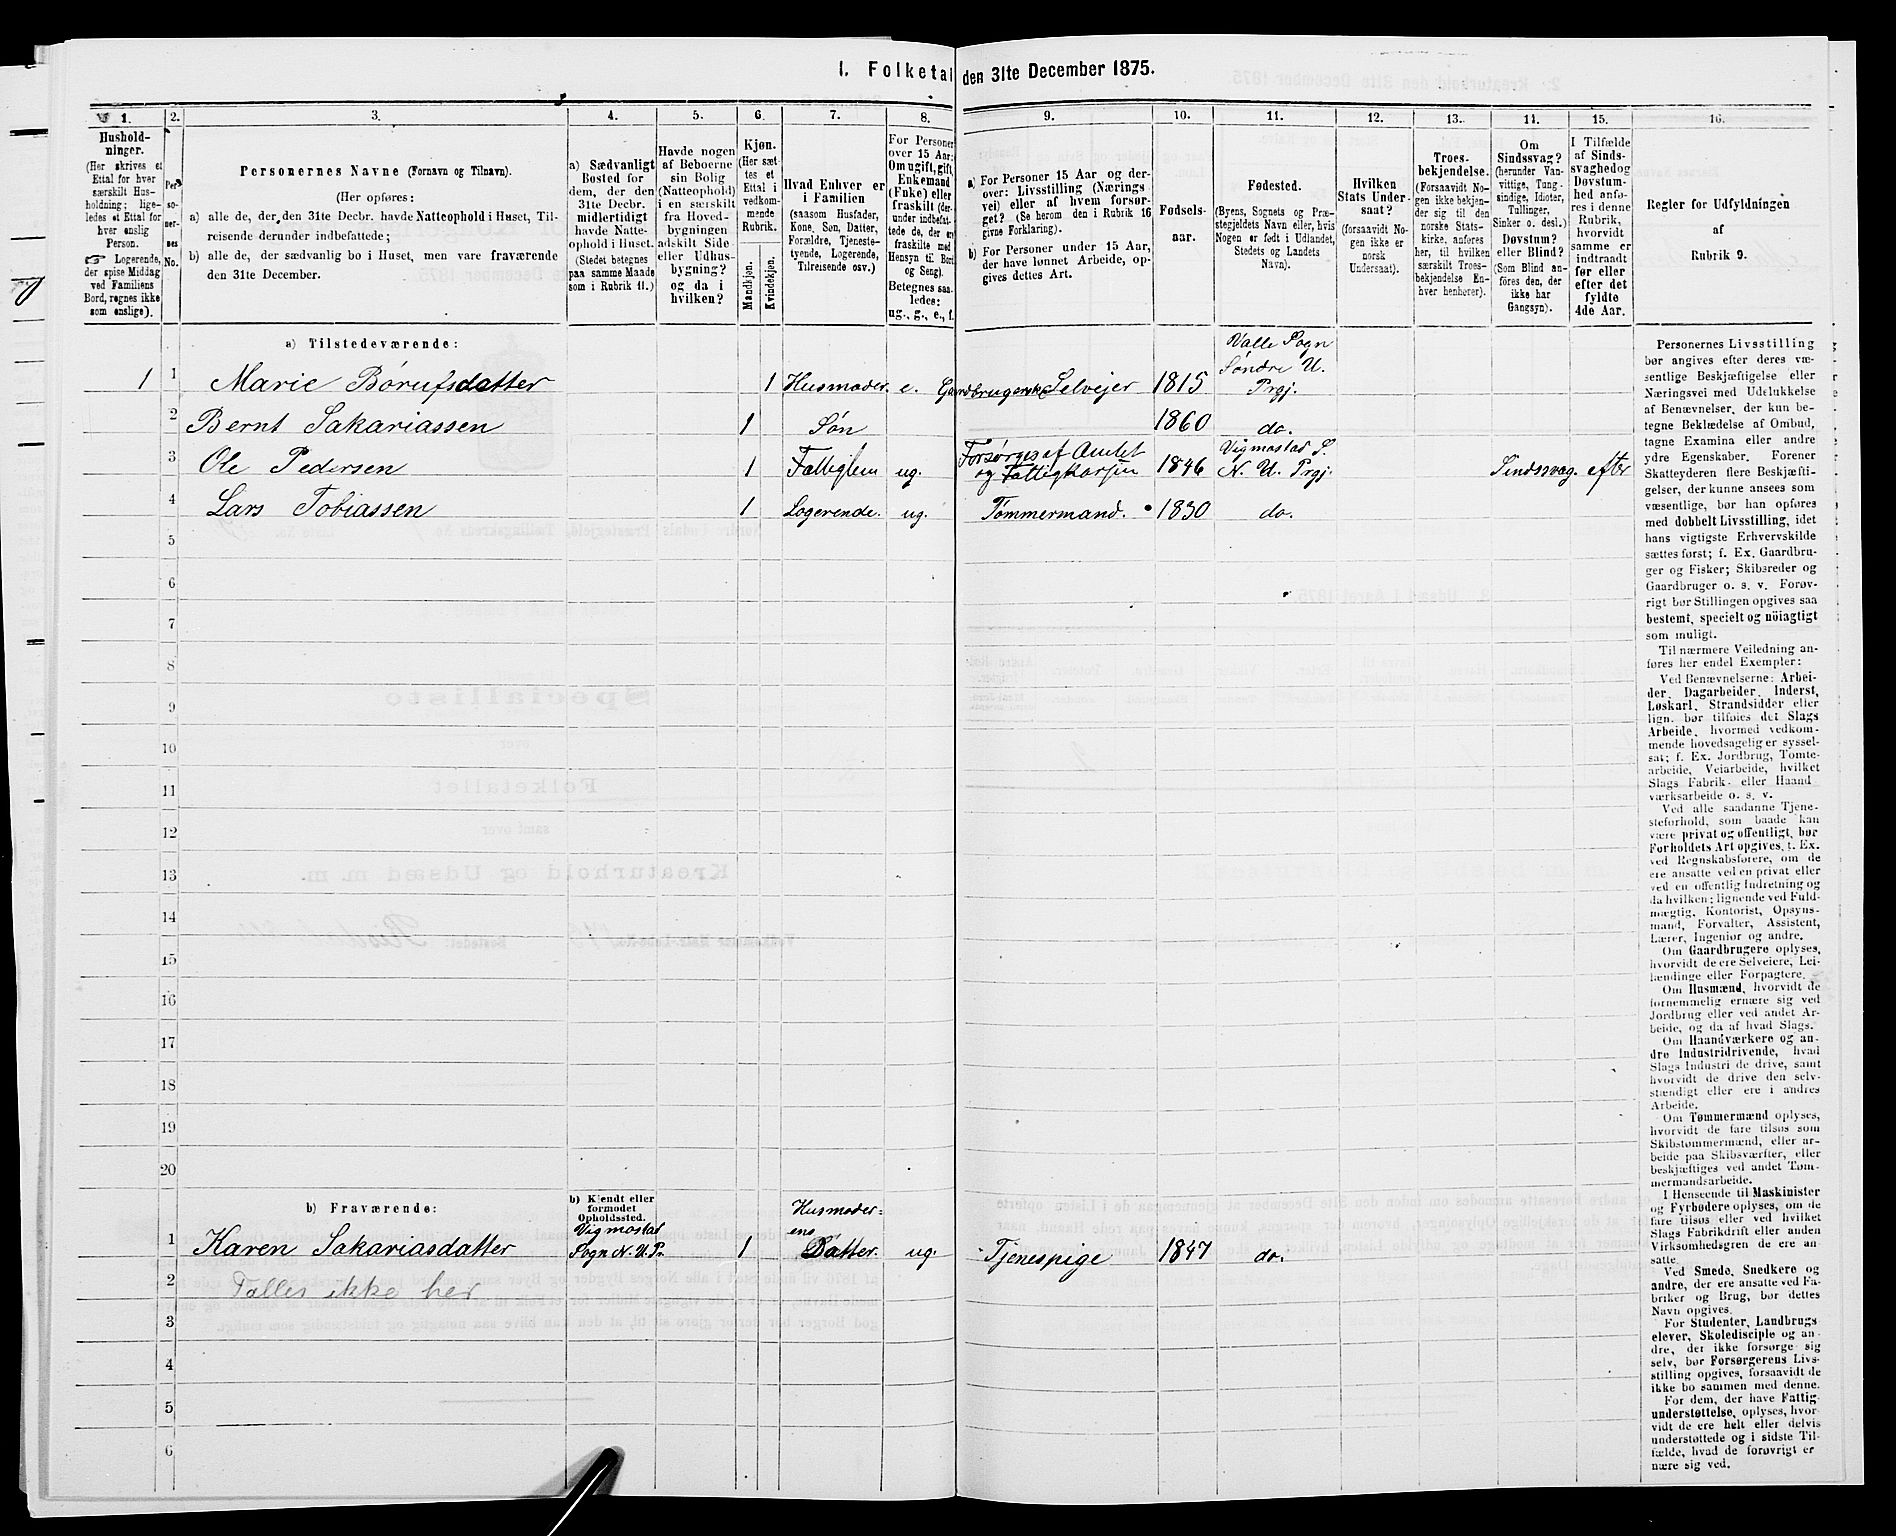 I. Folketal den 31te December 1875.
1. 2. 3. 4. 5. 6. 7. 8. 9. 10. 11. 12. 13. 14. 15. 16.
Hushold-
ninger.
(Her skrives et
Ettal for hver
særskilt Hus-
holdning; lige-
ledes et Ettal for
hver enslig
Person.
☞ Logerende,
der spise Middag
ved Familiens
Bord, regnes ikke
som enslige).
Per-
so-
ner-
nes
No.
Personernes Navne (Fornavn og Tilnavn).
(Her opføres:
a) alle de, der den 31te Decbr. havde Natteophold i Huset, Til-
reisende derunder indbefattede;
b) alle de, der sædvanlig bo i Huset, men vare fraværende
den 31te December.
a) Sædvanligt
Bosted for
dem, der den
31te Decbr.
midlertidigt
havde Natte-
ophold i Huset.
(Stedet betegnes
paa samme Maade
som i Rubrik 11.)
Havde nogen
af Beboerne
sin Bolig
(Natteophold)
i en særskilt
fra Hoved-
bygningen
adskilt Side-
eller Udhus-
bygning?
og da i
hvilken?
Kjøn.
(Her sæt-
tes et
Ettal i
vedkom-
mende
Rubrik.
Mandkjøn.
Kvindekjøn.
Hvad Enhver er
i Familien
(saasom Husfader,
Kone, Søn, Datter,
Forældre, Tjeneste-
tyende, Logerende,
Tilreisende osv.)
For Personer
over 15 Aar:
Om ugift, gift,
Enkemand
(Enke) eller
fraskilt (der-
under indbefat-
tede de, der ere
fraskilte med
Hensyn til Bord
og Seng).
Betegnes saa-
ledes:
ug., g., e., f.
a) For Personer 15 Aar og der-
over: Livsstilling (Nærings-
vei) eller af hvem forsør-
get? (Se herom den i Rubrik 16
givne Forklaring).
b) For Personer under 15 Aar,
der have lønnet Arbeide, op-
gives dettes Art.
Fødsels-
aar.
Fødested.
(Byens, Sognets og Præ-
stegjeldets Navn eller, hvis
Nogen er født i Udlandet,
Stedets og Landets
Navn).
Hvilken
Stats Under-
saat?
(forsaavidt No-
gen ikke er
norsk
Undersaat).
Troes-
bekjendelse.
(Forsaavidt No-
gen ikke bekjen-
der sig til den
norske Stats-
kirke, anføres
her, til hvilken
særskilt Troes-
bekjendelse En-
hver henhører).
Om
Sindssvag?
(herunder Van-
vittige, Tung-
sindige, Idioter,
Tullinger,
Sinker o. desl.)
Døvstum?
eller Blind?
(Som Blind an-
føres den, der
ikke har
Gangsyn).
I Tilfælde
af Sinds-
svaghed og
Døvstum-
hed anfø-
res i denne
Rubrik,
hvorvidt
samme er
indtraadt
før eller
efter det
fyldte
4de Aar.
Regler for Udfyldningen
af
Rubrik 9.
a) Tilstedeværende:
Valle Sogn
Søndre U.
1 1 Marie Børufsdatter 1 Husmoder. e. Gaardbrugerske Selvejer 1815 Prgj.
2 Bernt Sakariassen 1 Søn 1860 do.
Forsørges af Amtet Vigmostad S.
3 Ole Pedersen 1 Fattiglem ug. og Fattigkassen 1846 N. U. Prgj. Sindssvag. efter
4 Lars Tobiassen 1 Logerende. ug. Tømmermand. 1830 do.
5
6
7
8
9
10
11
12
13
14
15
16
17
18
19
20
b) Fraværende:
b) Kjendt eller
formodet
Opholdssted.
Vigmostad
Husmoder-
ens
1 Karen Sakariasdatter Sogn N. U. Pr. 1 Datter. ug. Tjenespige 1847 do.
2 Talles ikke her
3
4
5
6
Personernes Livsstilling
bør angives efter deres væ-
sentlige Beskjæftigelse eller
Næringsvei med Udelukkelse
af Benævnelser, der kun be-
tegne Beklædelse af Ombud,
tagne Examina eller andre
ydre Egenskaber. Forener
Skatteyderen flere Beskjæfti-
gelser, der kunne ansees som
væsentlige, bør han opføres
med dobbelt Livsstilling, idet
hans vigtigste Erhvervskilde
sættes først; f. Ex. Gaardbru-
ger og Fisker; Skibsreder og
Gaardbruger o. s. v. Forøv-
rigt bør Stillingen opgives saa
bestemt, specielt og nöiagtigt
som muligt.
Til nærmere Veiledning an-
føres her endel Exempler:
Ved Benævnelserne: Arbei-
der, Dagarbeider, Inderst,
Løskarl, Strandsidder eller
lign. bør tilføies det Slags
Arbeide, hvormed vedkom-
mende hovedsagelig er syssel-
sat; f. Ex. Jordbrug, Tomte-
arbeide, Veiarbeide, hvilket
Slags Fabrik- eller Haand-
værksarbeide o. s. v.
Ved alle saadanne Tjene-
steforhold, som baade kan
være privat og offentligt, bør
Forholdets Art opgives, f. Ex.
ved Regnskabsførere, om de
ere ansatte ved en privat eller
ved en offentlig Indretning og
da hvilken; lignende ved Fuld-
mægtig, Kontorist, Opsyns-
mand, Forvalter, Assistent,
Lærer, Ingeniør og andre.
Om Gaardbrugere oplyses,
hvorvidt de ere Selveiere, Lei-
lændinge eller Forpagtere.
Om Husmænd, hvorvidt de
fornemmelig ernære sig ved
Jordbrug eller ved andet Ar-
beide, og da af hvad Slags.
Om Haandværkere og an-
dre Industridrivende, hvad
Slags Industri de drive, samt
hvorvidt de drive den selv-
stændigt eller ere i andres
Arbeide.
Om Tømmermænd oplyses,
hvorvidt de fare tilsøs som
Skibstømmermænd, eller ar-
beide paa Skibsværfter, eller
beskjæftiges ved andet Tøm-
mermandsarbeide.
I Henseende til Maskinister
og Fyrbødere oplyses, om de
fare tilsøs eller ved hvilket
Slags Fabrikdrift eller anden
Virksomhedsgren de ere an-
satte.
Ved Smede, Snedkere og
andre, der ere ansatte ved Fa-
briker og Brug, bør dettes
Navn opgives.
For Studenter, Landbrugs-
elever, Skoledisciple og an-
dre, der ikke forsørge sig
selv, bør Forsørgerens Livs-
stilling opgives, forsaavidt de
ikke bo sammen med denne.
For dem, der have Fattig-
understøttelse, oplyses, hvor-
vidt de ere helt eller delvis
understøttede og i sidste Til-
fælde, hvad de forøvrigt er-
nære sig ved.